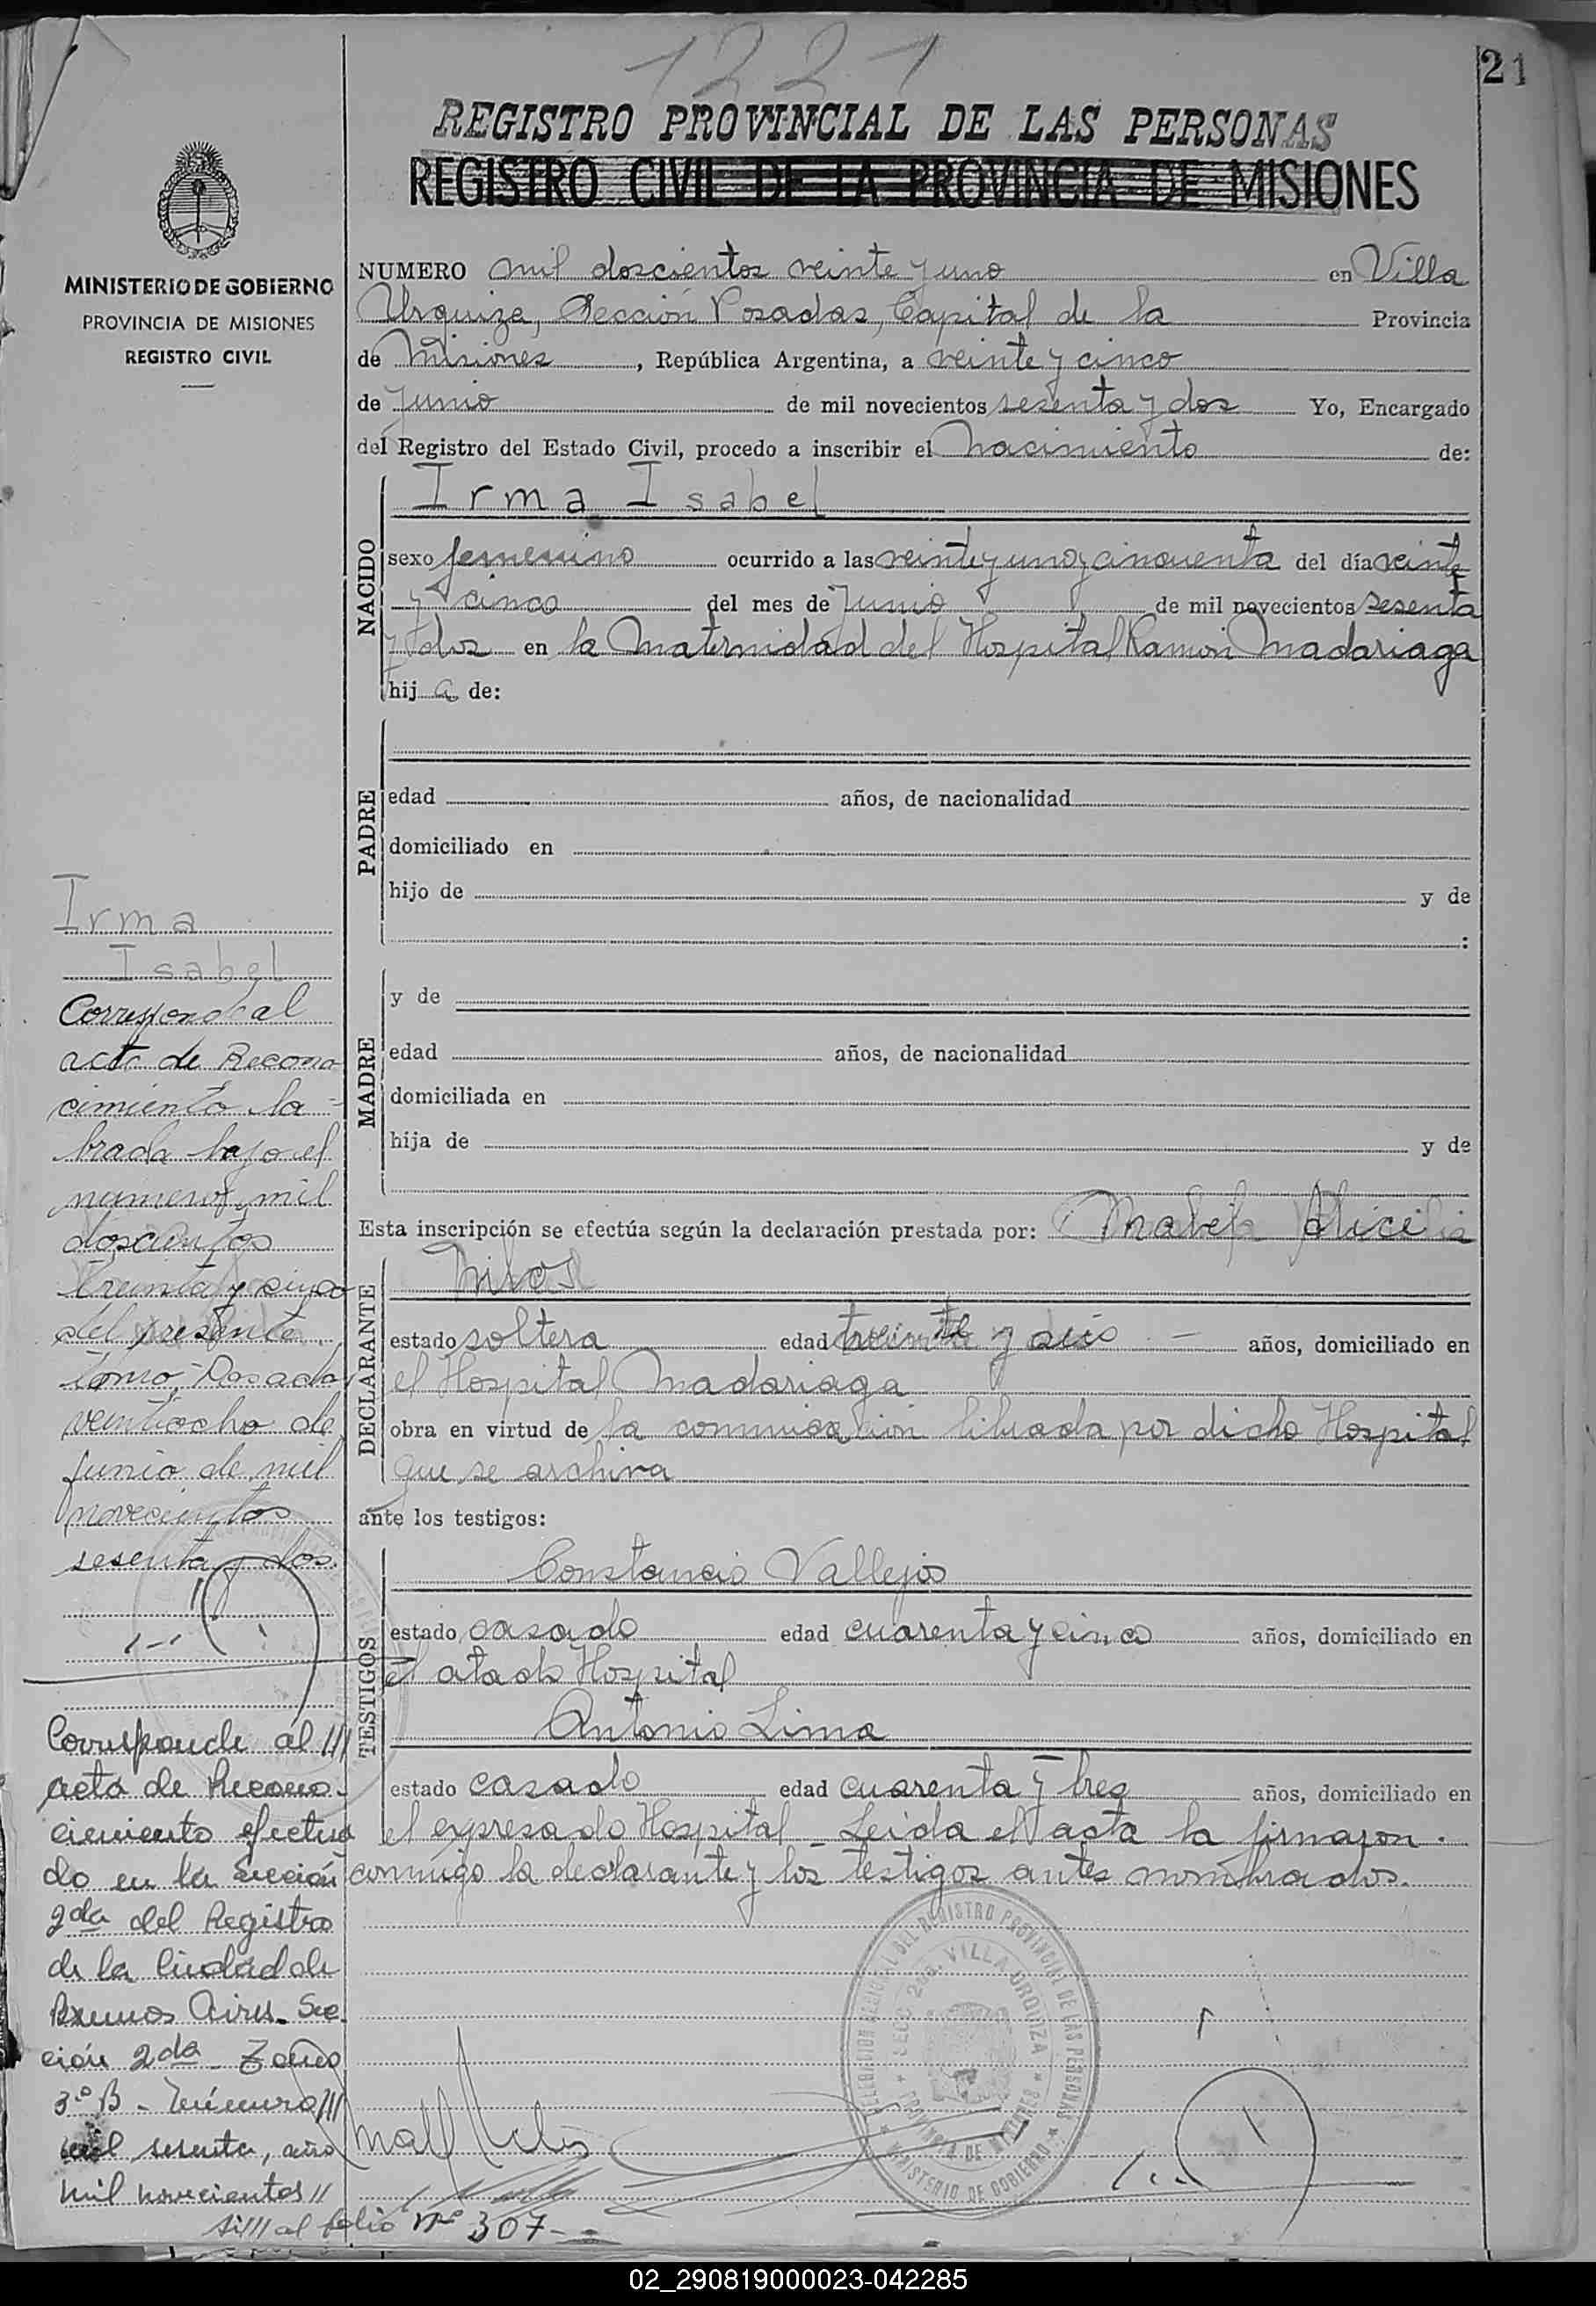 1221
21
REGISTRO PROVINCIAL DE LAS PERSONAS
REGISTRO CIVIL DE LA PROVINCIA DE MISIONES
MINISTERIO DE GOBIERNO
PROVINCIA DE MISIONES
REGISTRO CIVIL
NUMERO mil doscientos veinte y uno en Villa
Urquiza, Sección Posadas, Capital de la Provincia
de Misiones, República Argentina, a veinte y cinco
de Junio de mil novecientos sesenta y dos Yo, Encargado
del Registro del Estado Civil, procedo a inscribir el nacimiento de:
NACIDO
Irma Isabel
sexo femenino ocurrido a las veinte y uno y cincuenta del día veinte
y cinco del mes de Junio de mil novecientos sesenta
y dos en la Maternidad del Hospital Ramon Madariaga
hij a de:
PADRE
edad años, de nacionalidad
domiciliado en
hijo de y de
:
MADRE
y de
edad años, de nacionalidad
domiciliada en
hija de y de
Esta inscripción se efectúa según la declaración prestada por: Mabel
DECLARANTE
estado soltera edad y años, domiciliado en
el Hospital Madariaga
obra en virtud de la comunicación librada por dicho Hospital
que se archiva
ante los testigos:
TESTIGOS
Constancio Vallejos
estado casado edad cuarenta y cinco años, domiciliado en
el Hospital
Antonio Lima
estado casado edad cuarenta y tres años, domiciliado en
el expresado Hospital - Leida el acta la firmaron
conmigo la declarante y los testigos antes nombrados.
Irma
Isabel
Corresponde al
acta de Recono-
cimiento la-
brada bajo el
numero mil
doscientos
treinta y cinco
del presente
tomo, Posadas
veintiocho de
junio de mil
novecientos
sesenta y dos.
Corresponde al ///
acta de Recono-
cimiento efectua
do en la Sección
2da del Registro
de la Ciudad de
Buenos Aires. Sec
ción 2da Tomo
3º B - Número ///
mil sesenta, año
mil novecientos //
al folio Nº 307-
DELEGACION DEL REGISTRO PROVINCIAL DE LAS PERSONAS
SECC. 2da. VILLA URQUIZA
PROVINCIA DE MISIONES
MINISTERIO DE GOBIERNO
02_290819000023-042285